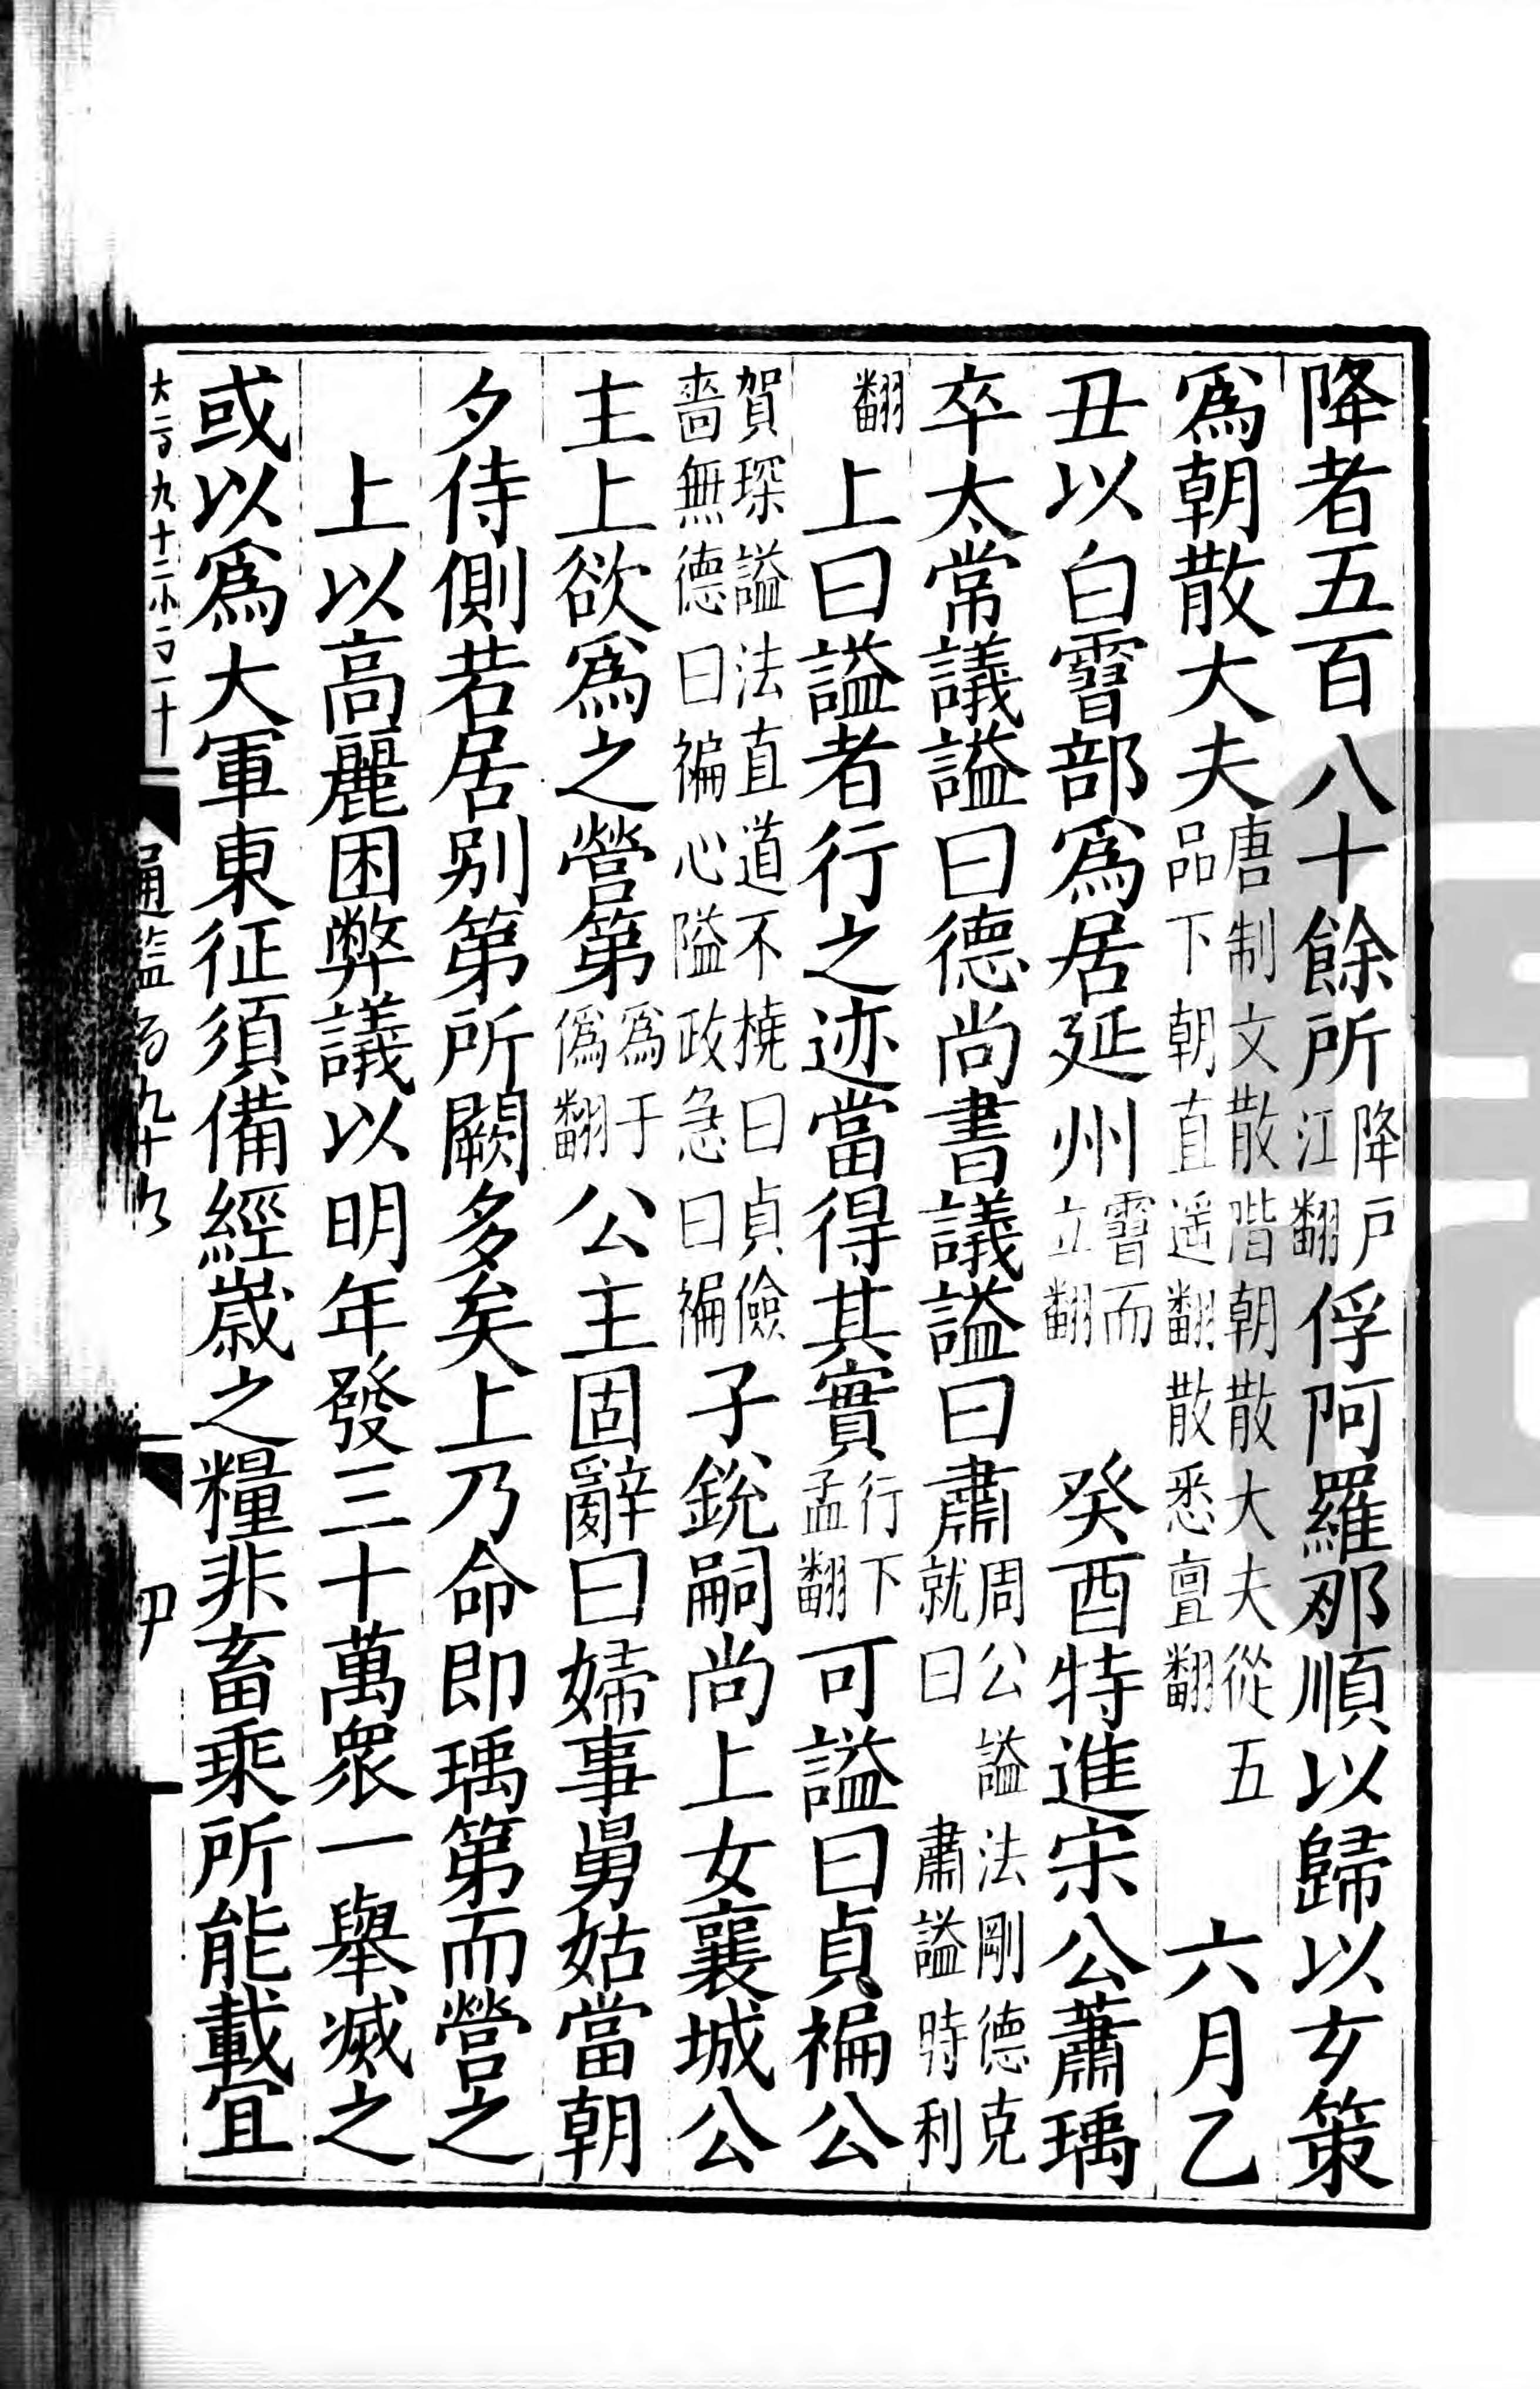 降者五百八十餘所降戸江翻俘阿羅那順以歸以亥策
爲朝散大夫唐制文散階朝散大夫從五品下朝直遥翻散悉亶翻六月乙
丑以白霫部爲居延州霫而立翻癸酉特進宋公蕭瑀
卒太常議謚曰德尚書議謚曰肅周公謚法剛德克就曰肅謚時利
翻上曰謚者行之迹當得其實行下孟翻可謚曰貞褊公
賀琛謚法直道不橈曰貞儉嗇無德曰褊心隘政急曰褊子銳嗣尚上女襄城公
主上欲爲之營第爲于僞翻公主固辭曰婦事舅姑當朝
夕侍側若居别第所闕多矣上乃命即瑀第而營之
上以高麗困弊議以明年發三十萬衆一舉滅之
或以爲大軍東征須備經歲之糧非畜乘所能載宜
大二百九十二小百一十
通鑑百九十九